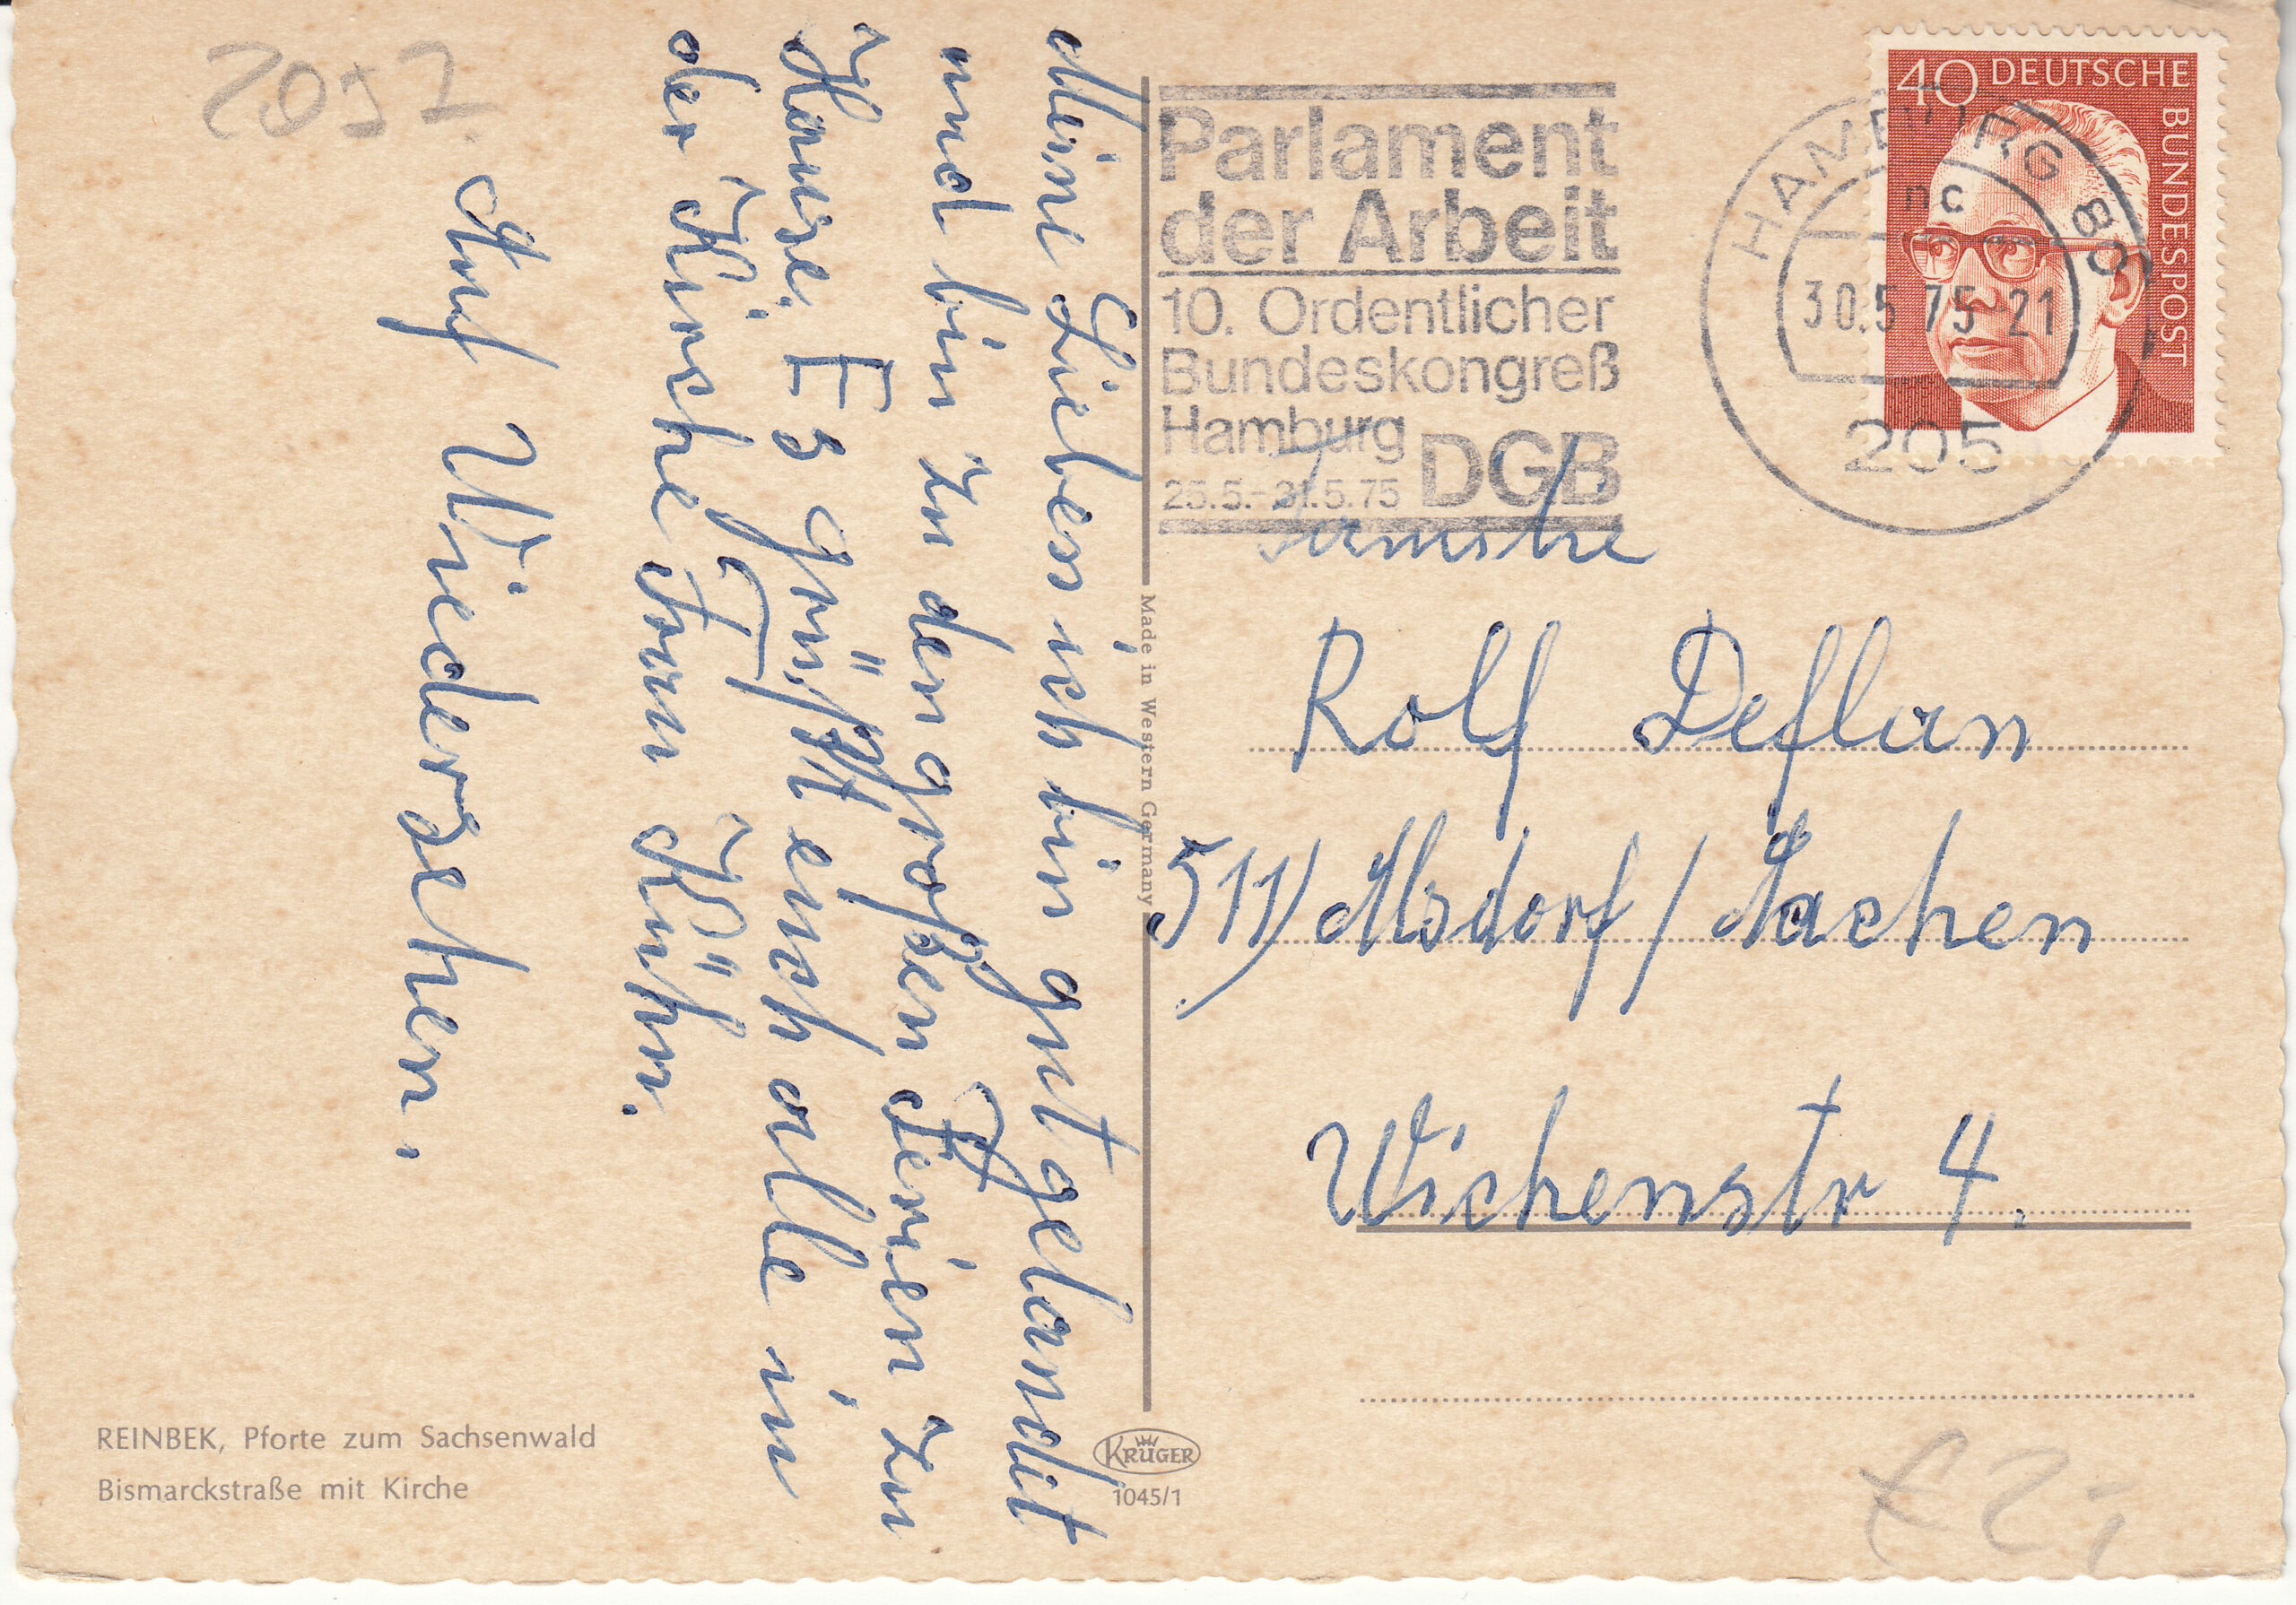 2057
Meine Lieben ich bin gut gelandet
und bin zu den großen Ferien zu
Hause. Es grüßt euch alle in
der Kirche Frau Kühn.
Auf Wiedersehen.
Parlament
der Arbeit
10. Ordentlicher
Bundeskongreß
Hamburg
25.5.-31.5.75 DGB
HAMBURG 80
nc
30.5.75-21
205
40 DEUTSCHE
BUNDESPOST
Familie
Rolf Deflan
511) Alsdorf / Aachen
Wichenstr 4.
Made in Western Germany
KRÜGER
1045/1
REINBEK, Pforte zum Sachsenwald
Bismarckstraße mit Kirche